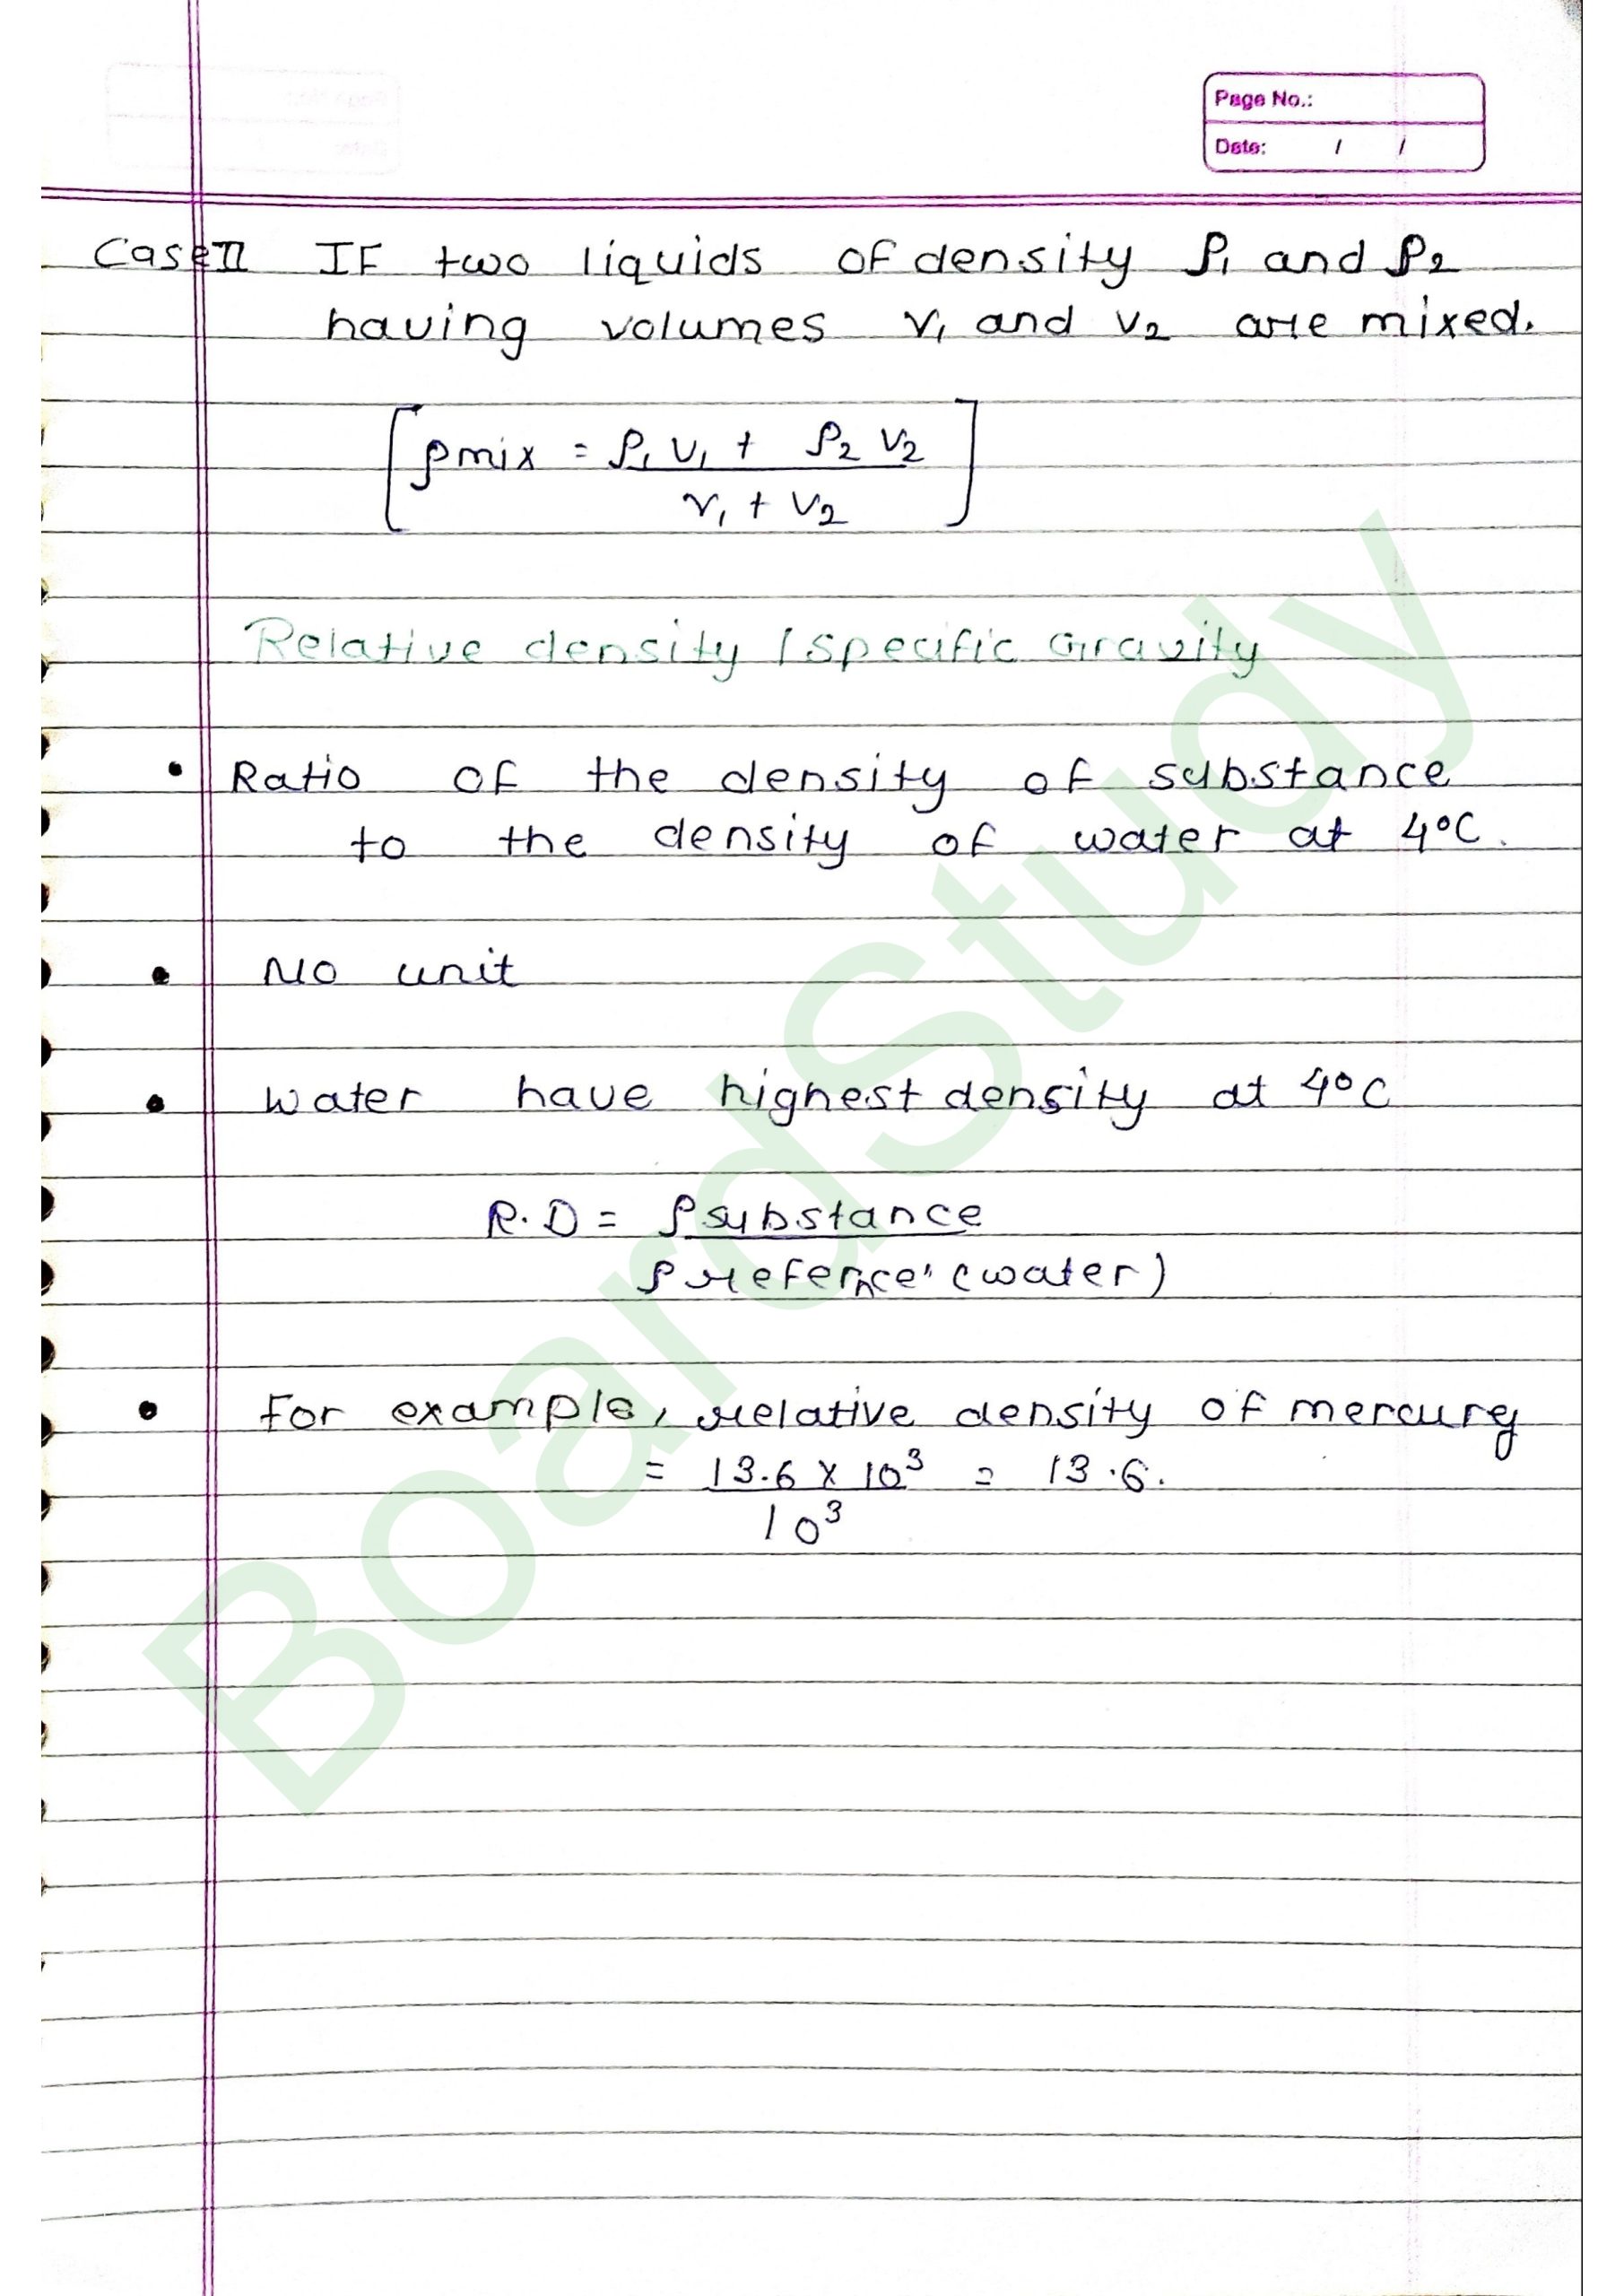 Page No.:
Date: / /
Case II IF two liquids of density ρ1 and ρ2
having volumes v1 and v2 are mixed.
[ρmix = ρ1 v1 + ρ2 v2
v1 + v2]
Relative density / specific Gravity
• Ratio of the density of substance
to the density of water at 4°C.
• No unit
• water have highest density at 4°C
R.D = ρsubstance
ρrefernce. (water)
• For example, relative density of mercury
= 13.6 x 10³ = 13.6.
10³
BoardStudy